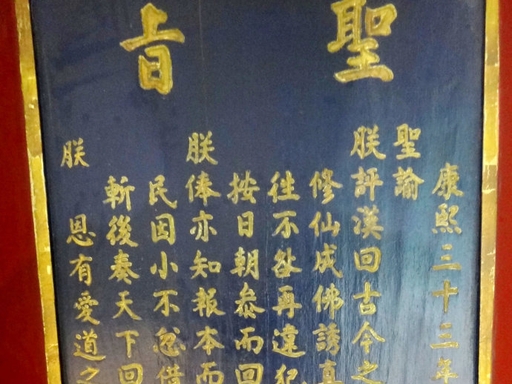 聖旨
康熙三十三年
聖諭
朕評漢回古今之
修仙成佛誘真
徃不咎再違犯
按日朝叅而回
朕俸亦知報本而
民因小不忿借
斬後奏天下回
朕 恩有愛道之